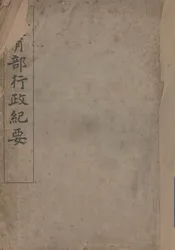 育部行政紀要